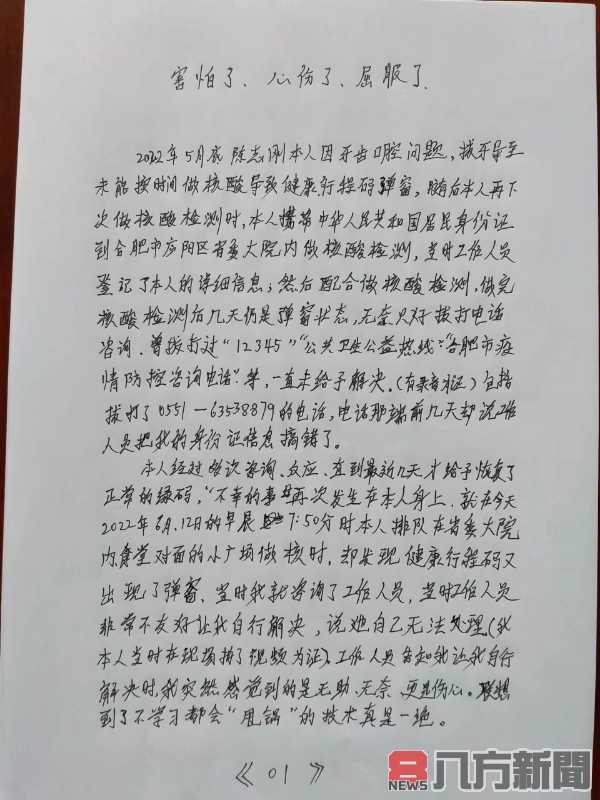 害怕了、心伤了、屈服了.
2022年5月底 陈志刚本人因牙齿口腔问题,拔牙导至
未能按时间做核酸导致健康行程码弹窗,随后本人再下
次做核酸检测时,本人携带中华人民共和国居民身份证
到合肥市庐阳区省委大院内做核酸检测,当时工作人员
登记了本人的详细信息;然后配合做核酸检测,做完
核酸检测后几天仍是弹窗状态,无奈只好拨打电话
咨询.曾拨打过"12345""公共卫生公益热线""合肥市疫
情防控咨询电话"等,一直未给予解决.(有录音为证)包括
拨打了0551—63538879的电话,电话那端前几天却说工作
人员把我的身份证信息搞错了。
本人经过多次咨询、反应、直到最近几天才给予恢复了
正常的绿码,"不幸的事再次发生在本人身上.就在今天
2022年6月.12日的早晨7:50分时本人排队在省委大院
内食堂对面的小广场做核时,却发现健康行程码又
出现了弹窗、当时我就咨询了工作人员,当时工作人员
非常不友好让我自行解决,说她自己无法处理(我
本人当时在现场拍了视频为证).工作人员告知我让我自行
解决时我突然感觉到的是无助、无奈、更是伤心。联想
到了不学习都会"甩锅"的技术真是一绝。
《01》
8 NEWS 八方新聞